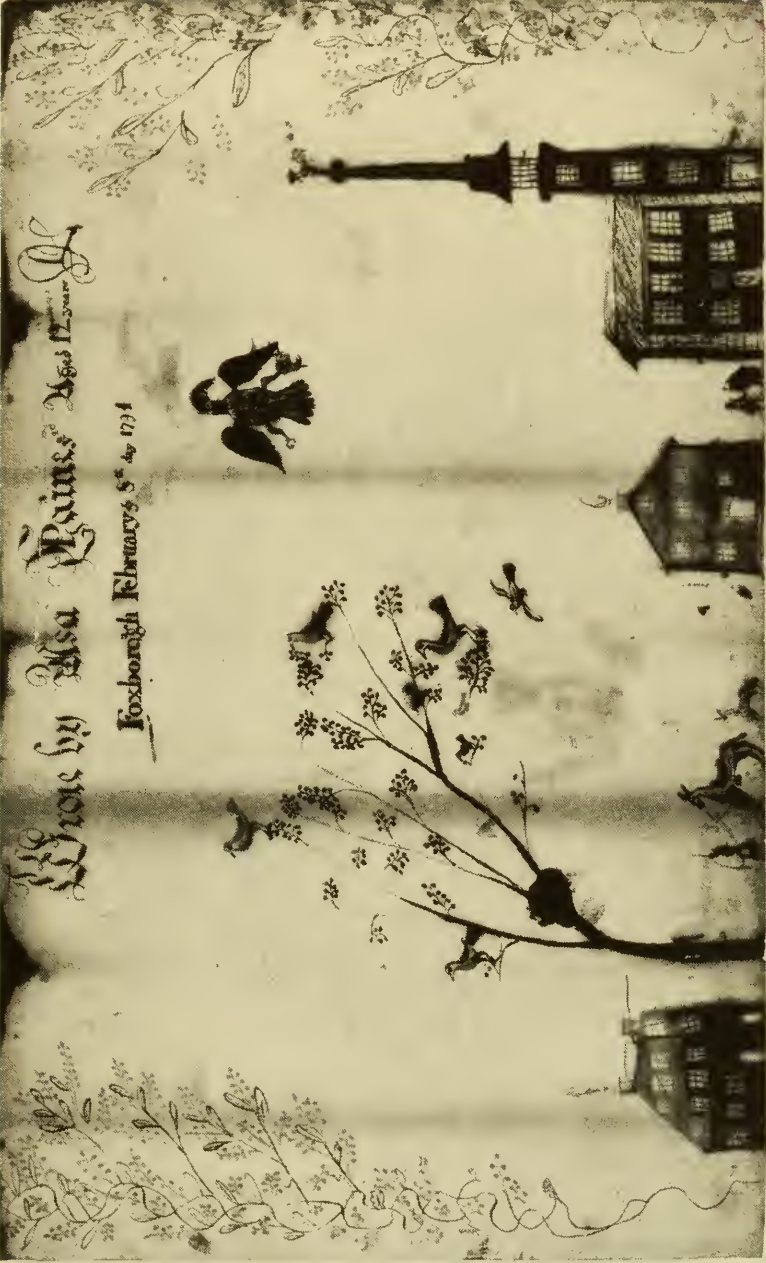 Wrote by Asa Paines Aged 12 years
Foxborough February 8th day 1794